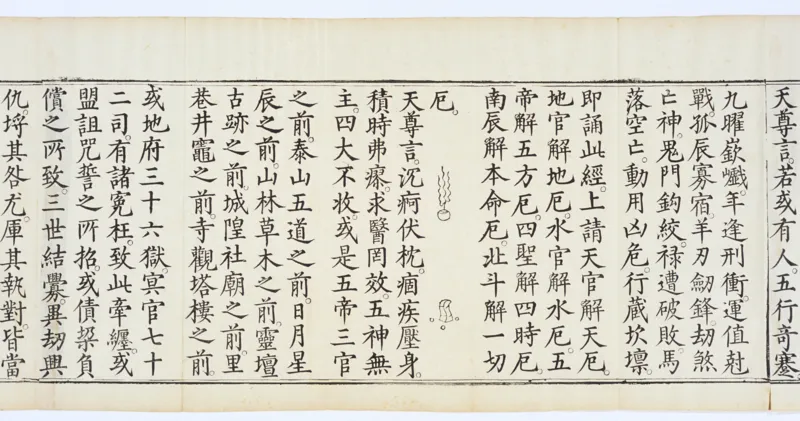 天尊言。若或有人。五行奇蹇
九曜嶔巇。年逢刑衝。運值尅
戰。孤辰寡宿。羊刃劒鋒。劫煞
亡神。鬼門鈎絞。祿遭破敗。馬
落空亡。動用凶危。行藏坎壈。
即誦此經。上請天官解天厄。
地官解地厄。水官解水厄。五
帝解五方厄。四聖解四時厄。
南辰解本命厄。北斗解一切
厄。
天尊言。沉痾伏枕。痼疾壓身。
積時弗瘳。求醫罔效。五神無
主。四大不收。或是五帝三官
之前。泰山五道之前。日月星
辰之前。山林草木之前。靈壇
古跡之前。城隍社廟之前。里
巷井竈之前。寺觀塔樓之前。
或地府三十六獄。冥官七十
二司。有諸冤枉。致此牽纏。或
盟詛咒誓之所招。或債埊負
償之所致。三世結釁。異劫興
仇。埒其咎尤。厙其執對。皆當